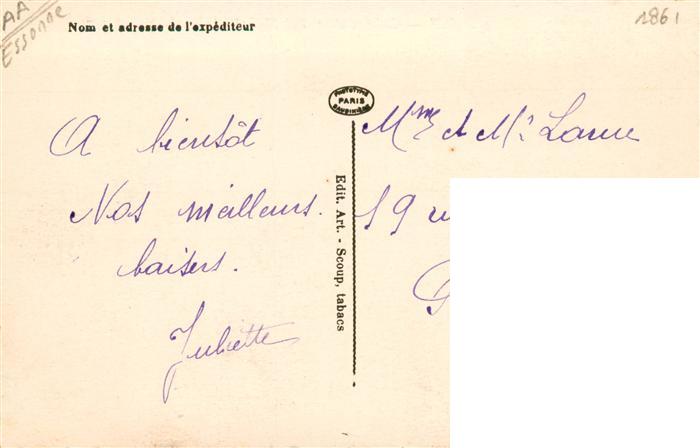 AA
ESSONNE
1861
Nom et adresse de l'expéditeur
PHOTOTYPIE
PARIS
BAUDINIÈRE
A bientôt
Nos meilleurs
baisers.
Juliette
Edit. Art. - Scoup, tabacs
Mme et Mr
19